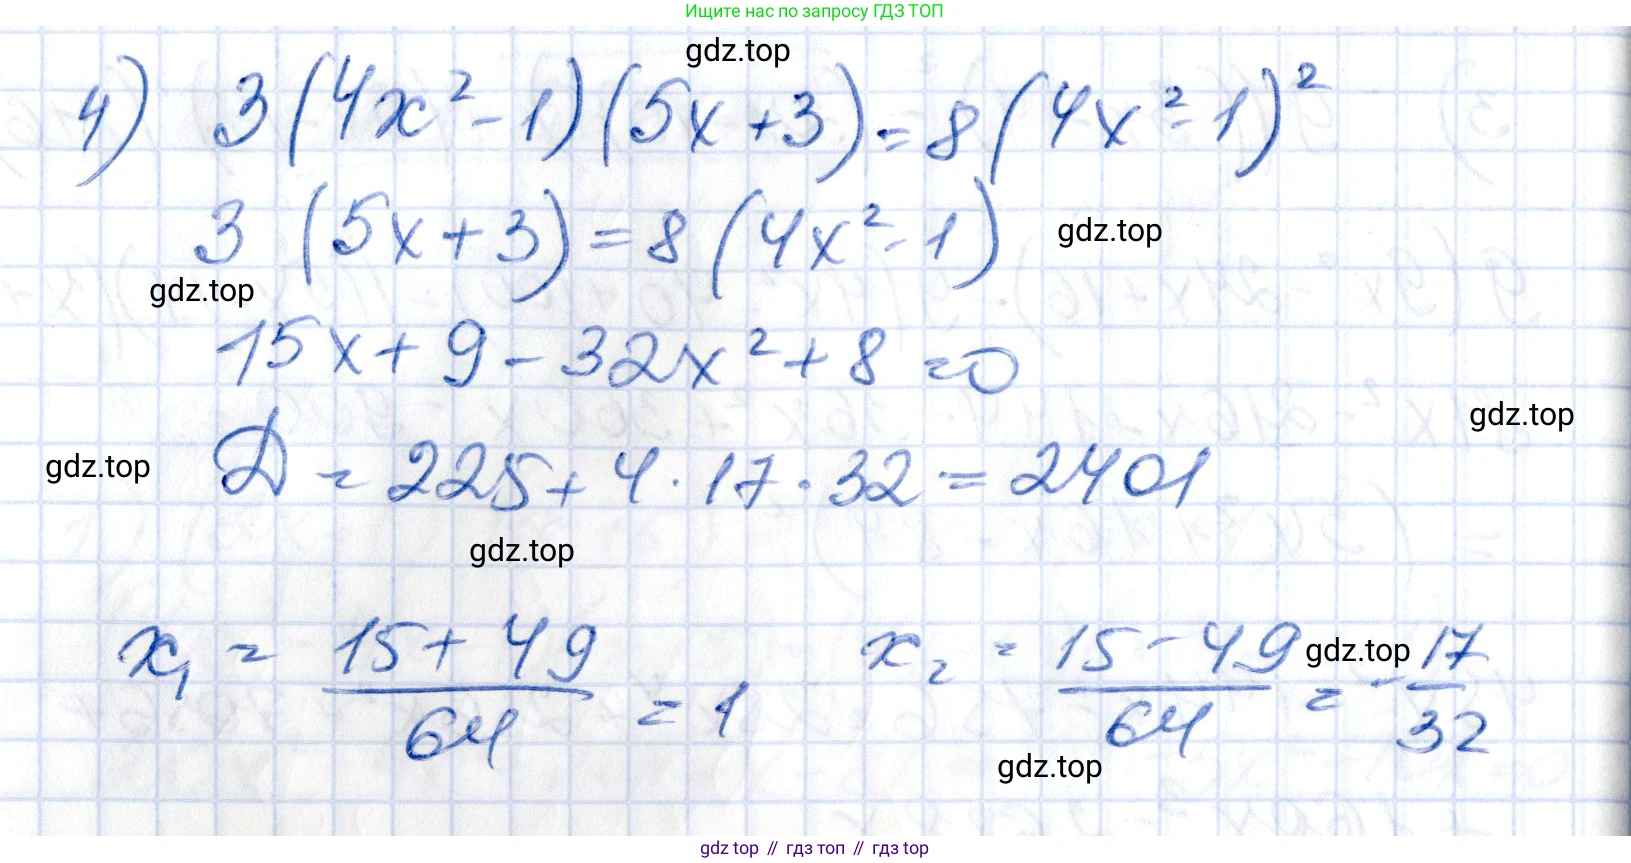 Ищите нас по запросу ГДЗ ТОП
gdz.top
4) 3(4x² - 1)(5x + 3) = 8(4x² - 1)²
3 (5x + 3) = 8(4x² - 1)
gdz.top
gdz.top
15x + 9 - 32x² + 8 = 0
gdz.top
gdz.top
D = 225 + 4 · 17 · 32 = 2401
gdz.top
x₁ = (15 + 49)/64 = 1 x₂ = (15 - 49)/64 = - 17/32
gdz.top
gdz.top
gdz top // гдз топ // гдз top